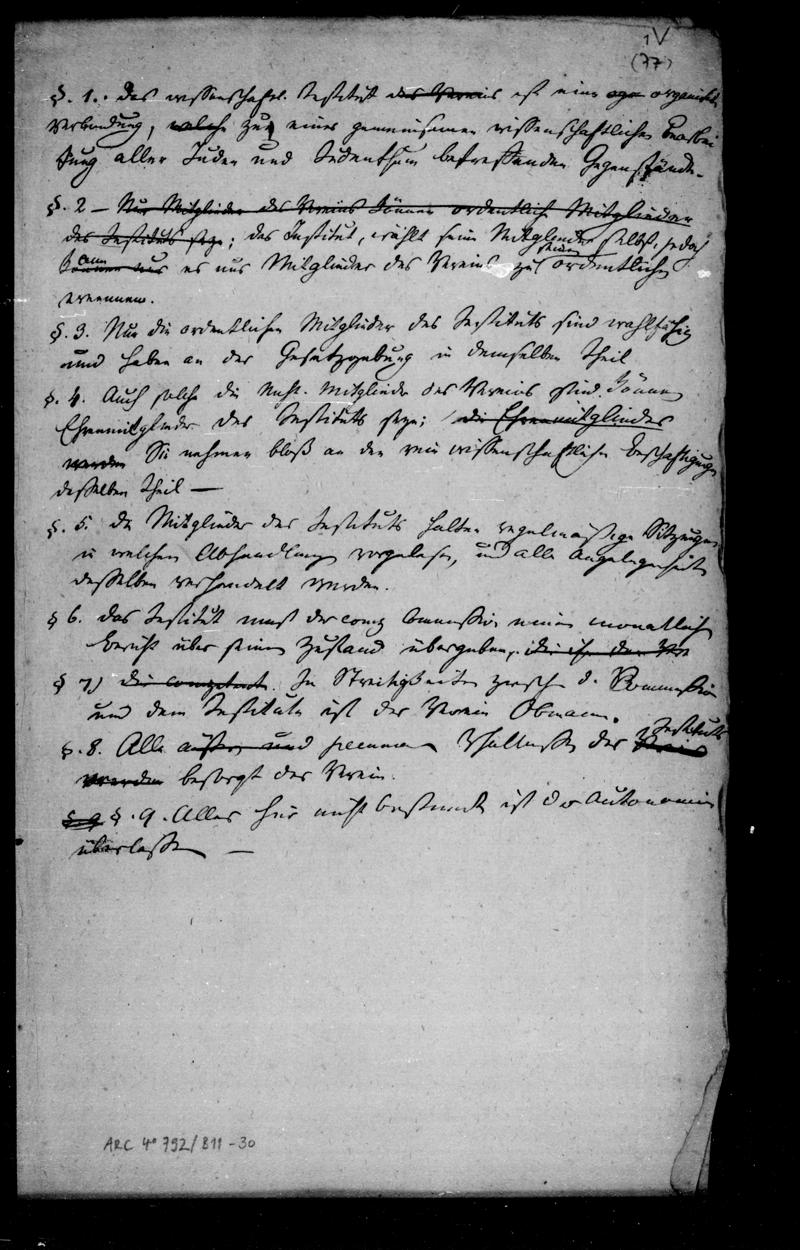 1V
(77)
§. 1. das wissenschaftl. Institut des Vereins ist eine org organisirte
Verbindung, welche zur einer gemeinsamen wissenschaftlichen Bearbei
tung aller Juden und Judenthum betreffenden Gegenstände.
§. 2 – Nur Mitglieder des Vereins können ordentliche Mitglieder
des Instituts seyn; das Institut, wählt seine Mitglieder selbst, jedoch
kann es nur Mitglieder des Vereins zu seinen ordentlichen
ernennen.
§. 3. Nur die ordentlichen Mitglieder des Instituts sind wahlfähig
und haben an der Gesetzgebung in demselben Theil
§. 4. Auch solche die nicht Mitglieder des Vereins sind können
Ehrenmitglieder des Instituts seyn; die Ehrenmitglieder
werden Sie nehmen bloß an den rein wissenschaftlichen Beschäftigungen
desselben Theil —
§. 5. die Mitglieder des Instituts halten regelmäßige Sitzungen
in welchen Abhandlungen vorgelesen, und alle Angelegenheiten
desselben verhandelt werden.
§ 6. das Institut muß der Commission einen monatlichen
Bericht über seinen Zustand übergeben,
§ 7) die competente. In Streitigkeiten zwisch d. Commission
und dem Institute ist der Verein Obmann.
§. 8. Alle äußern und Verhältnisse des Instituts
werden besorgt der Verein.
§. 9 §. 9. Alles hier nicht bestimmte ist der Autonomie
überlassen —
ARC 4° 792/B11-30